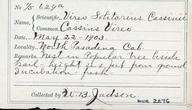 No 629a
Scientific: Vireo Solitarius Cassinii
Common: Cassins Vireo
Date: Mar. 22 - 1903
Locality: North Pasadena Cal.
Remarks: Nest in Pepper tree beside
trail. Height feet from ground
Incubation fresh
Collected by W.B. Judson
2276